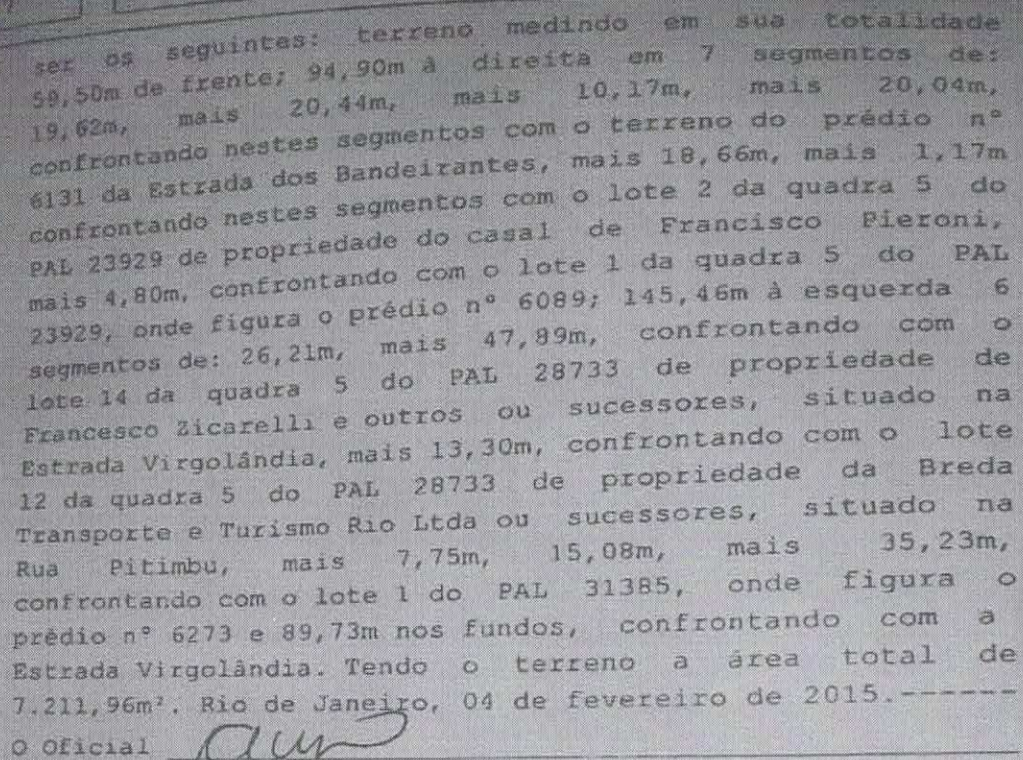 ser os seguintes: terreno medindo em sua totalidade
59,50m de frente; 94,90m à direita em 7 segmentos de:
19,62m, mais 20,44m, mais 10,17m, mais 20,04m,
confrontando nestes segmentos com o terreno do prédio nº
6131 da Estrada dos Bandeirantes, mais 18,66m, mais 1,17m
confrontando nestes segmentos com o lote 2 da quadra 5 do
PAL 23929 de propriedade do casal de Francisco Pieroni,
mais 4,80m, confrontando com o lote 1 da quadra 5 do PAL
23929, onde figura o prédio nº 6089; 145,46m à esquerda 6
segmentos de: 26,21m, mais 47,89m, confrontando com o
lote 14 da quadra 5 do PAL 28733 de propriedade de
Francesco Zicarelli e outros ou sucessores, situado na
Estrada Virgolândia, mais 13,30m, confrontando com o lote
12 da quadra 5 do PAL 28733 de propriedade da Breda
Transporte e Turismo Rio Ltda ou sucessores, situado na
Rua Pitimbu, mais 7,75m, 15,08m, mais 35,23m,
confrontando com o lote 1 do PAL 31385, onde figura o
prédio nº 6273 e 89,73m nos fundos, confrontando com a
Estrada Virgolândia. Tendo o terreno a área total de
7.211,96m². Rio de Janeiro, 04 de fevereiro de 2015.------
O Oficial